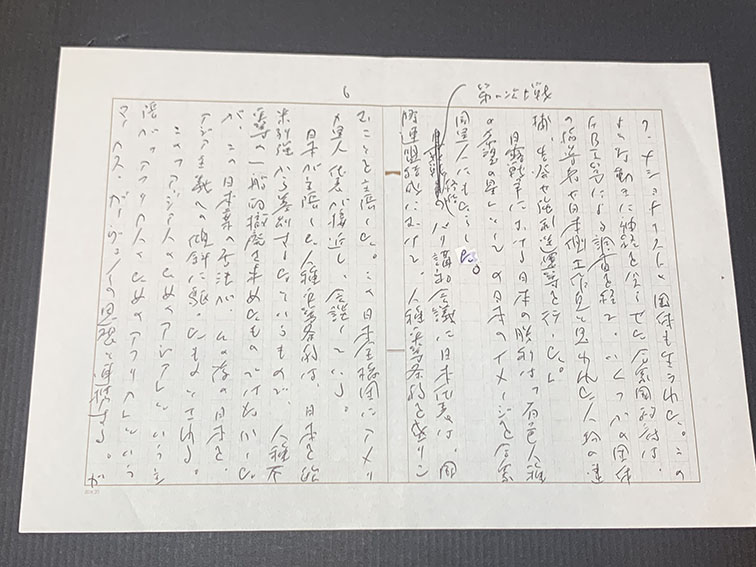 ナショナリスト団体も生まれた。この
ような動きに神経を尖らせた合衆国政府は、
FBI等による調査を経て、いくつかの団体
の指導者や日本側工作員と思われた人物の逮
捕、告発や強制送還等を行った。
日露戦争における日本の勝利は「有色人種
の希望の星」としての日本のイメージを合衆
国黒人にもたらした。
第一次大戦
終結後のパリ講和会議に日本代表は、国
際連盟規約において、人種平等条約を盛りこ
むことを主張した。この日本全権団にアメリ
カ黒人代表が接近し、会談している。
日本が主張した人種平等条約は、日本を始
米列強から差別するなというもので、人種不
平等の一般的撤廃を求めたものではなかった
が、この日本案の否決が、以後の日本を、
アジア主義への傾斜に駆ったともいわれる。
この「アジア人のためのアジア」という主
張が「アフリカ人のためのアフリカ」という
マーカス・ガーヴェイの思想と連動する。が
6